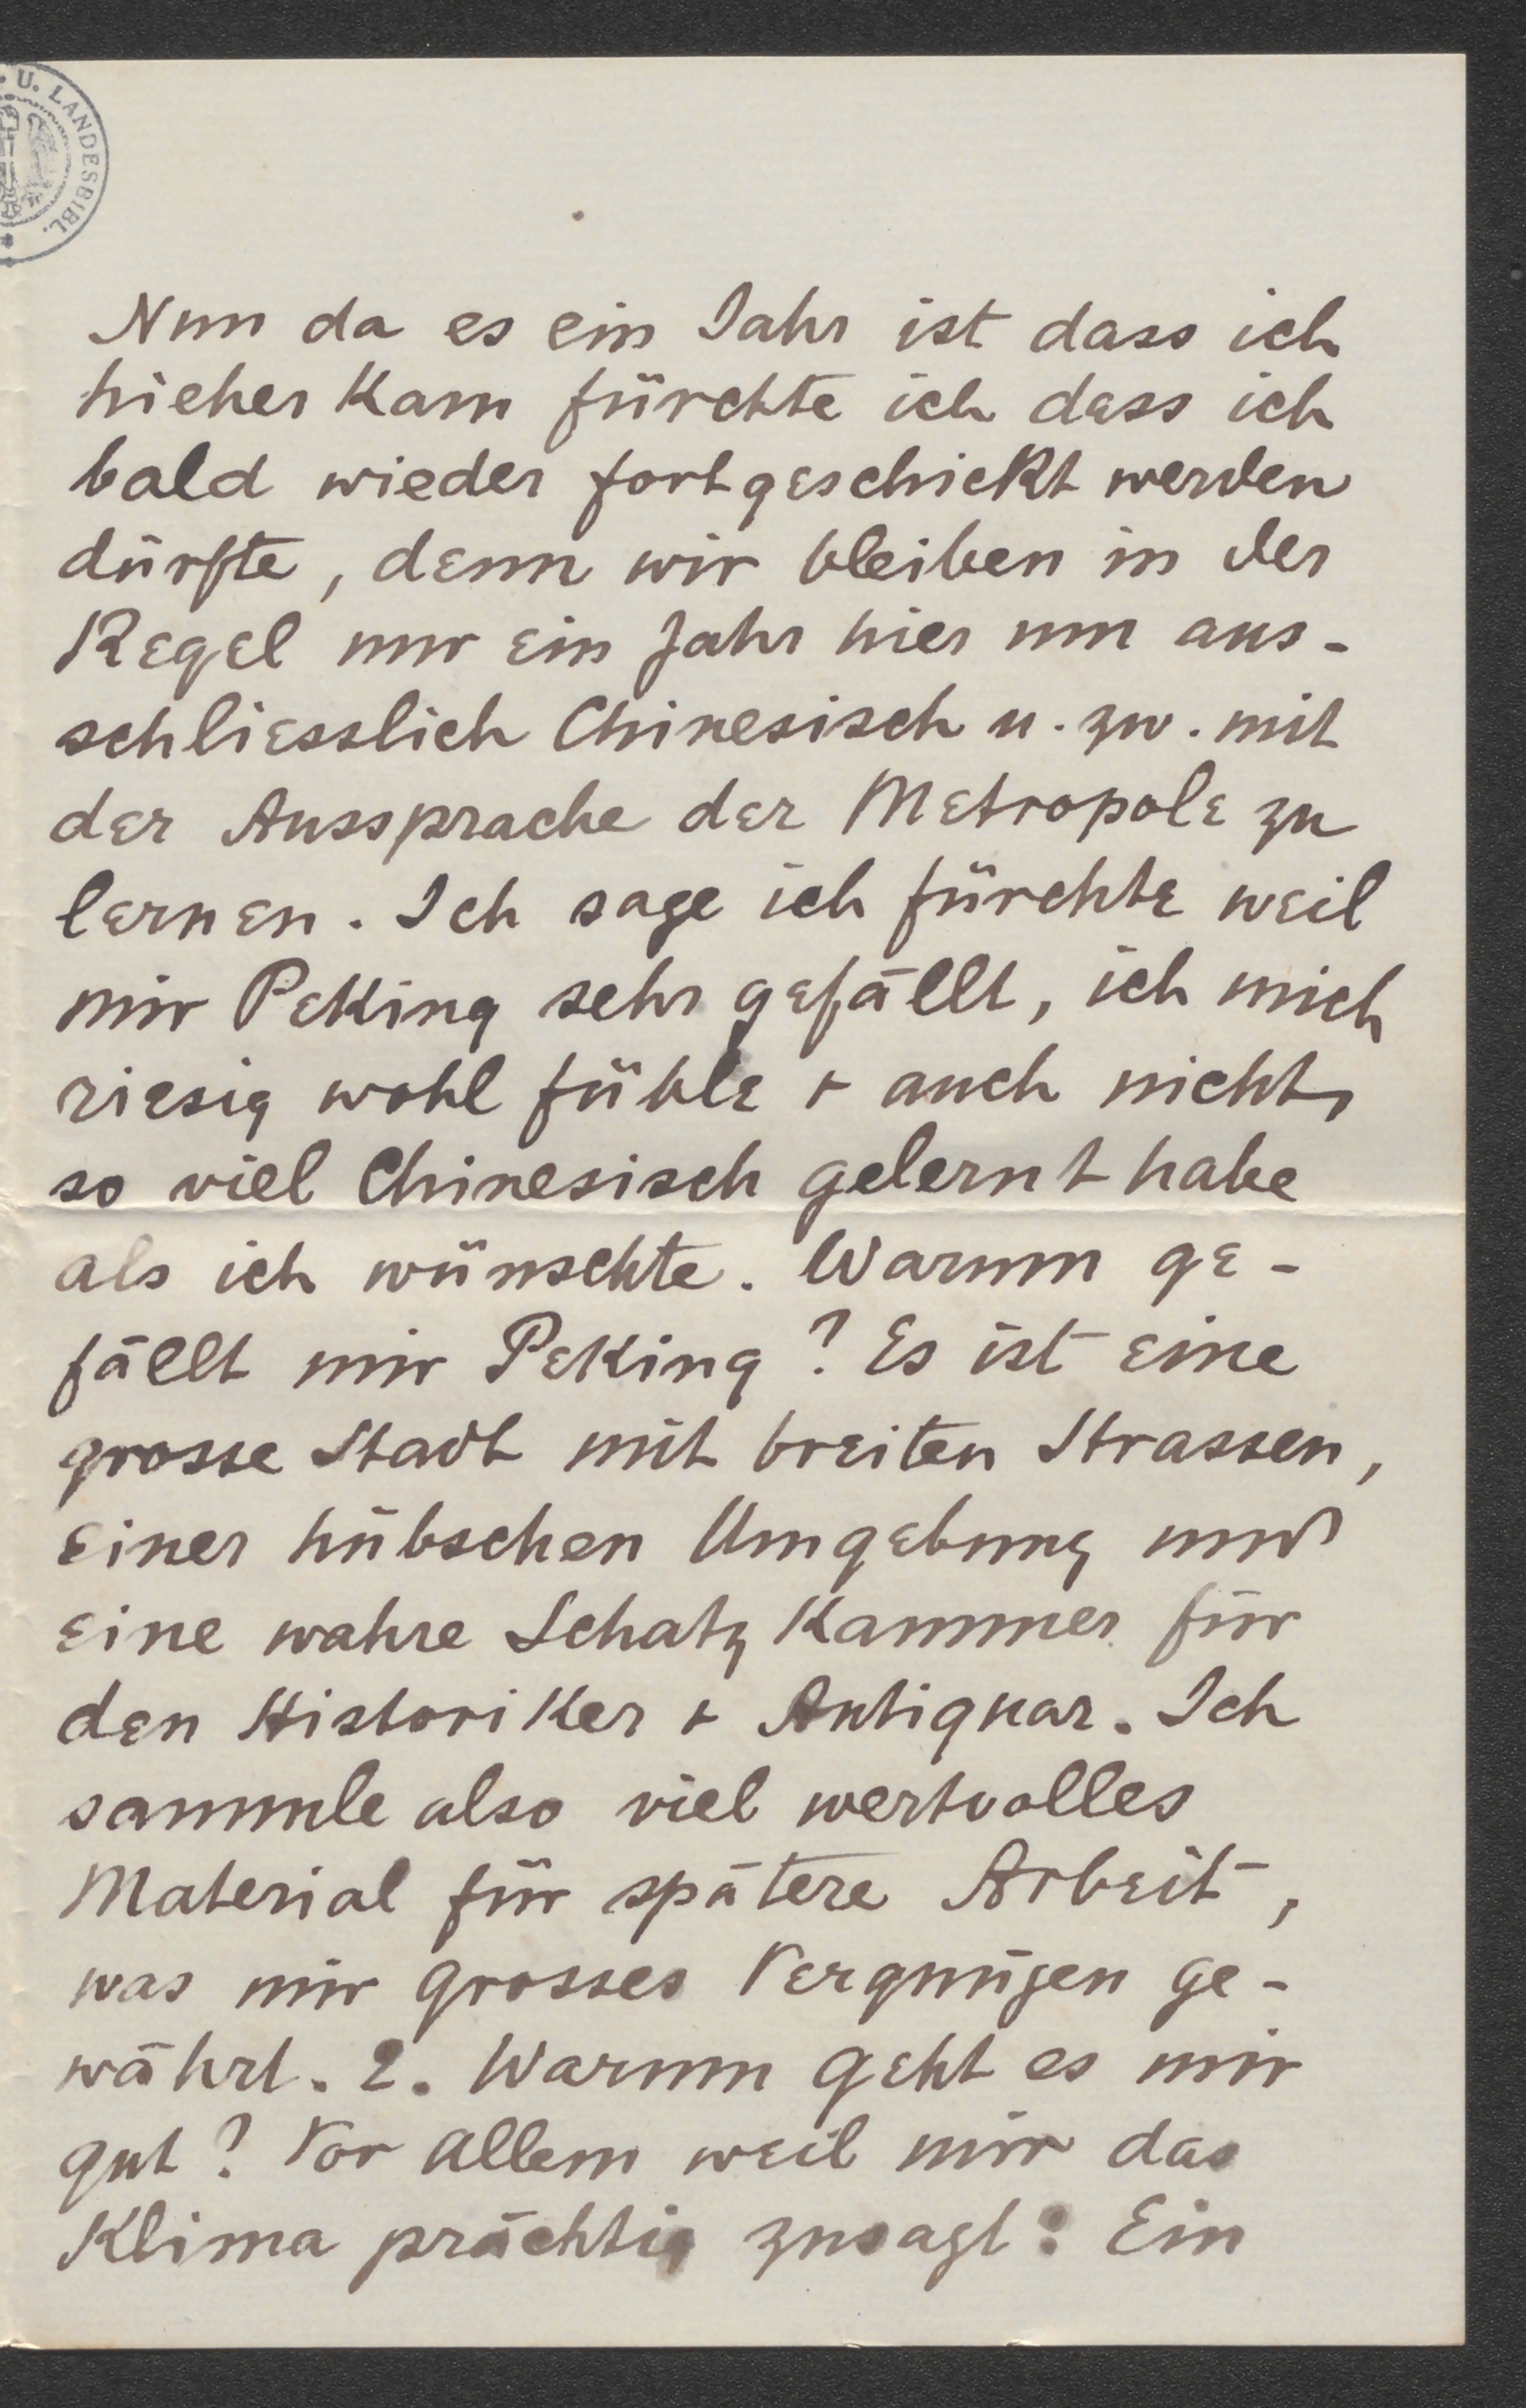 U. LANDESBIBL.
Nun da es ein Jahr ist dass ich
hieher kam fürchte ich dass ich
bald wieder fortgeschickt werden
dürfte, denn wir bleiben in der
Regel nur ein Jahr hier um aus-
schliesslich Chinesisch u. zw. mit
der Aussprache der Metropole zu
lernen. Ich sage ich fürchte weil
mir Peking sehr gefällt, ich mich
riesig wohl fühle + auch nicht
so viel Chinesisch gelernt habe
als ich wünschte. Warum ge-
fällt mir Peking? Es ist eine
grosse Stadt mit breiten Strassen,
einer hübschen Umgebung und
eine wahre Schatzkammer für
den Historiker + Antiquar. Ich
sammle also viel wertvolles
Material für spätere Arbeit,
was mir grosses Vergnügen ge-
währt. 2. Warum geht es mir
gut? Vor allem weil mir das
Klima prächtig zusagt: Ein